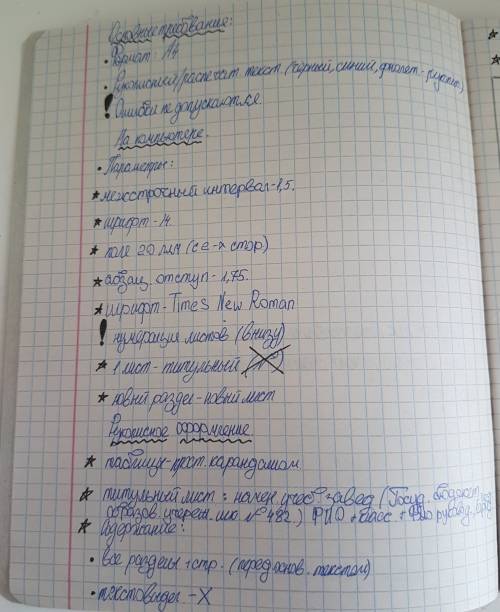 Основные требования:
• Формат А4
• Рукописный/распечат. текст. (чёрный, синий, фиолет-рукопис)
! Ошибки не допускаются.
На компьютере.
• Параметры:
★ межстрочный интервал-1,5.
★ шрифт-14.
★ поле 20 мм (с 4-х стор)
★ абзац. отступ - 1,75.
★ шрифт-Times New Roman
! нумерация листов (внизу)
★ 1 лист-титульный
★ новый раздел-новый лист
Рукописное оформление
★ таблицы-прост. карандашом.
★ титульный лист: наимен. учеб. завед (Госуд. бюджет.
образов. учрежд. шк. №482.) ФИО + класс. + ФИО руковод.
★ Содержание:
• все разделы + стр. (перед основ. текстом)